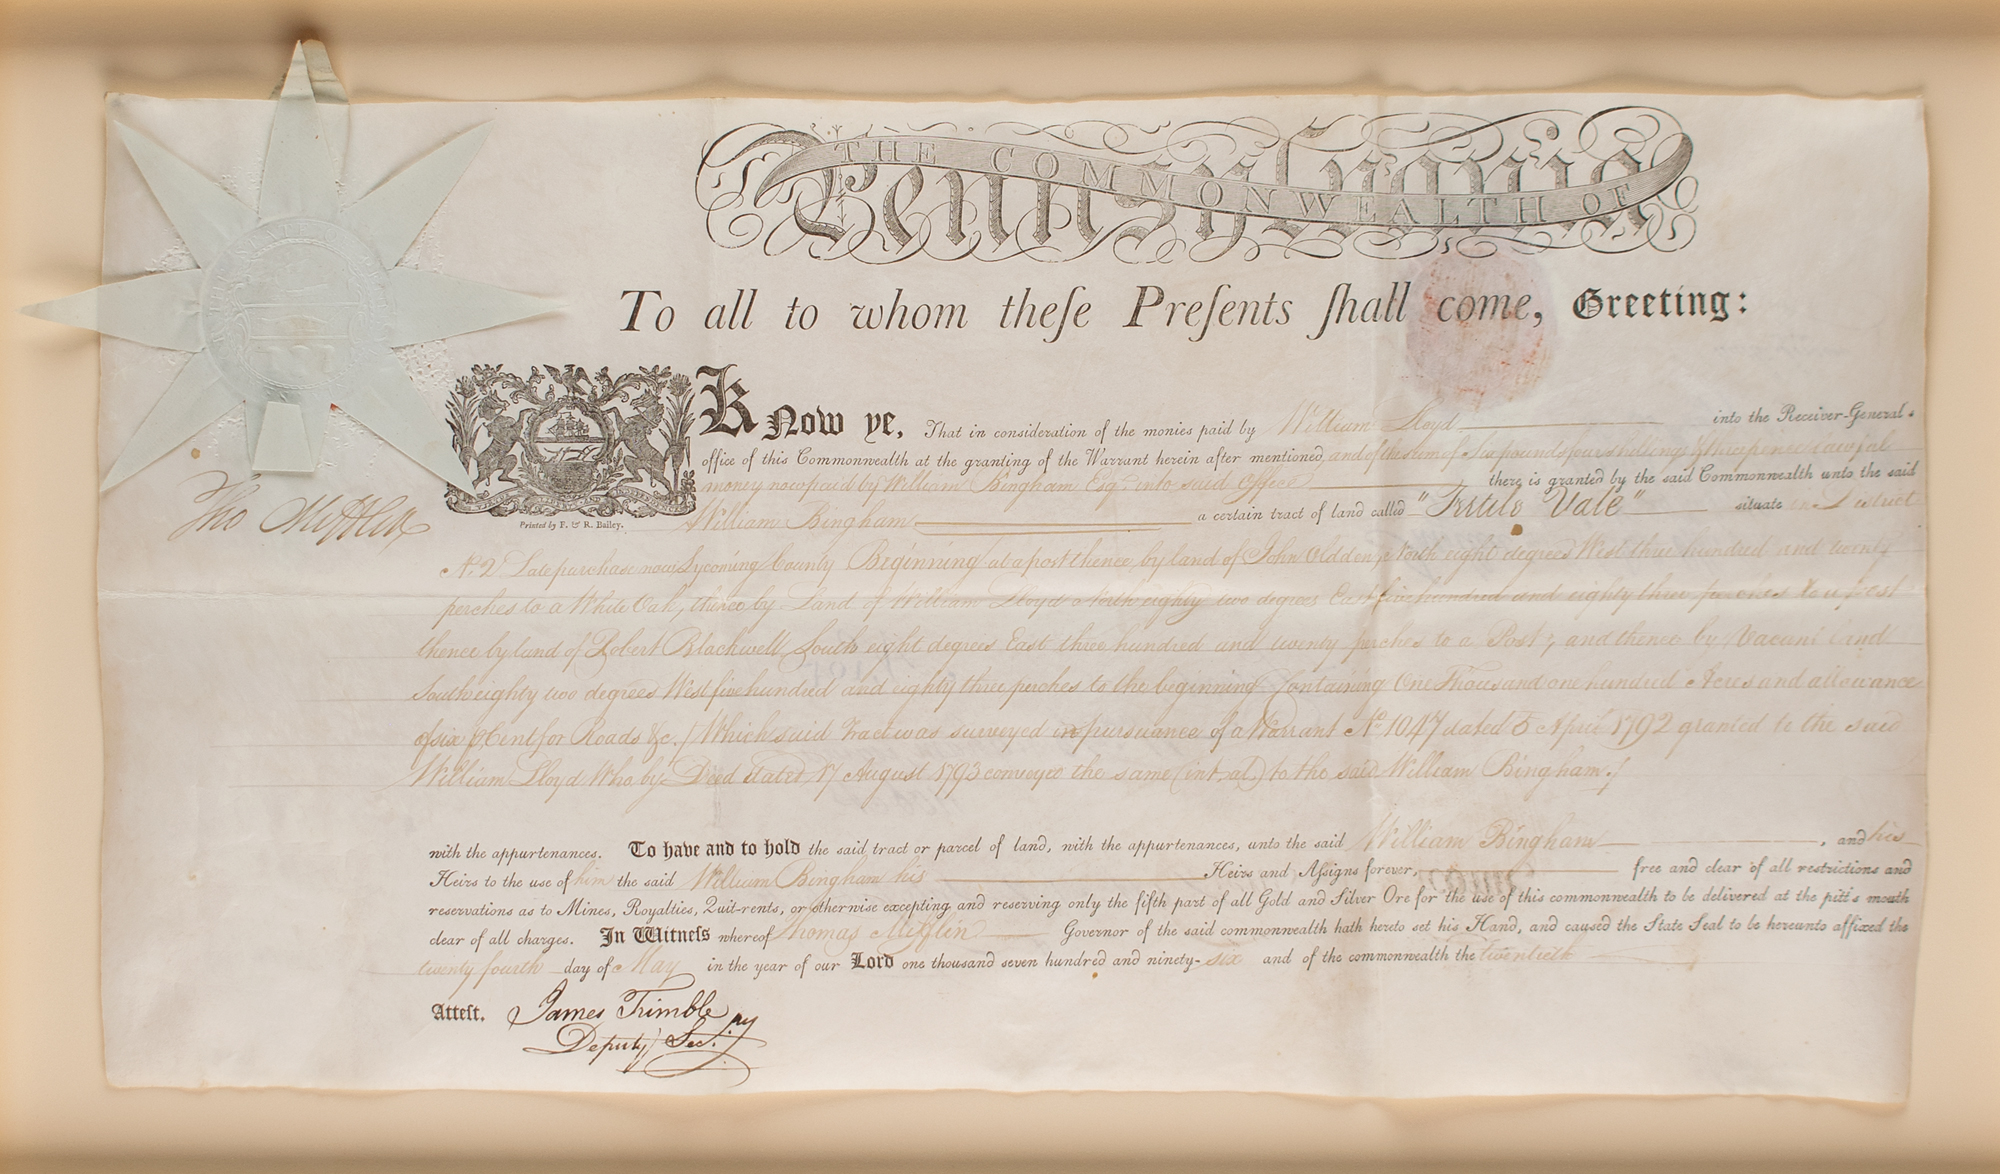 THE COMMONWEALTH OF
Pennsylvania
To all to whom theſe Preſents ſhall come, Greeting:
Know ye, That in consideration of the monies paid by William Lloyd into the Receiver-General's
office of this Commonwealth at the granting of the Warrant herein after mentioned and of the sum of Six pounds four shillings & three pence Lawful
money now paid by William Bingham Esqr into said Office there is granted by the said Commonwealth unto the said
William Bingham a certain tract of land called "Fertile Vale" situate in District
No. 2 Late purchase now Lycoming County Beginning at a post thence by land of John Oldden, North eight degrees West three hundred and twenty
perches to a White Oak, thence by Land of William Lloyd North eighty two degrees East five hundred and eighty three perches to a post
thence by land of Robert Blackwell South eight degrees East three hundred and twenty perches to a Post; and thence by Vacant Land
South eighty two degrees West five hundred and eighty three perches to the beginning Containing One Thousand one hundred Acres and allowance
of six ⅌ Cent for Roads &c. / Which said Tract was surveyed in pursuance of a Warrant No. 1047 dated 5 April 1792 granted to the said
William Lloyd Who by Deed dated 17 August 1793 conveyed the same (int. al.) to the said William Bingham./
with the appurtenances. To have and to hold the said tract or parcel of land, with the appurtenances, unto the said William Bingham, and his
Heirs to the use of him the said William Bingham his Heirs and Aſsigns forever, free and clear of all restrictions and
reservations as to Mines, Royalties, Quit-rents, or otherwise excepting and reserving only the fifth part of all Gold and Silver Ore for the use of this commonwealth to be delivered at the pitt's mouth
clear of all charges. In Witneſs whereof Thomas Mifflin Governor of the said commonwealth hath hereto set his Hand, and caused the State Seal to be hereunto affixed the
twenty fourth day of May in the year of our Lord one thousand seven hundred and ninety-six and of the commonwealth the twentieth
Atteſt. James Trimble
Deputy Secy.
Tho Mifflin
Printed by F. & R. Bailey.